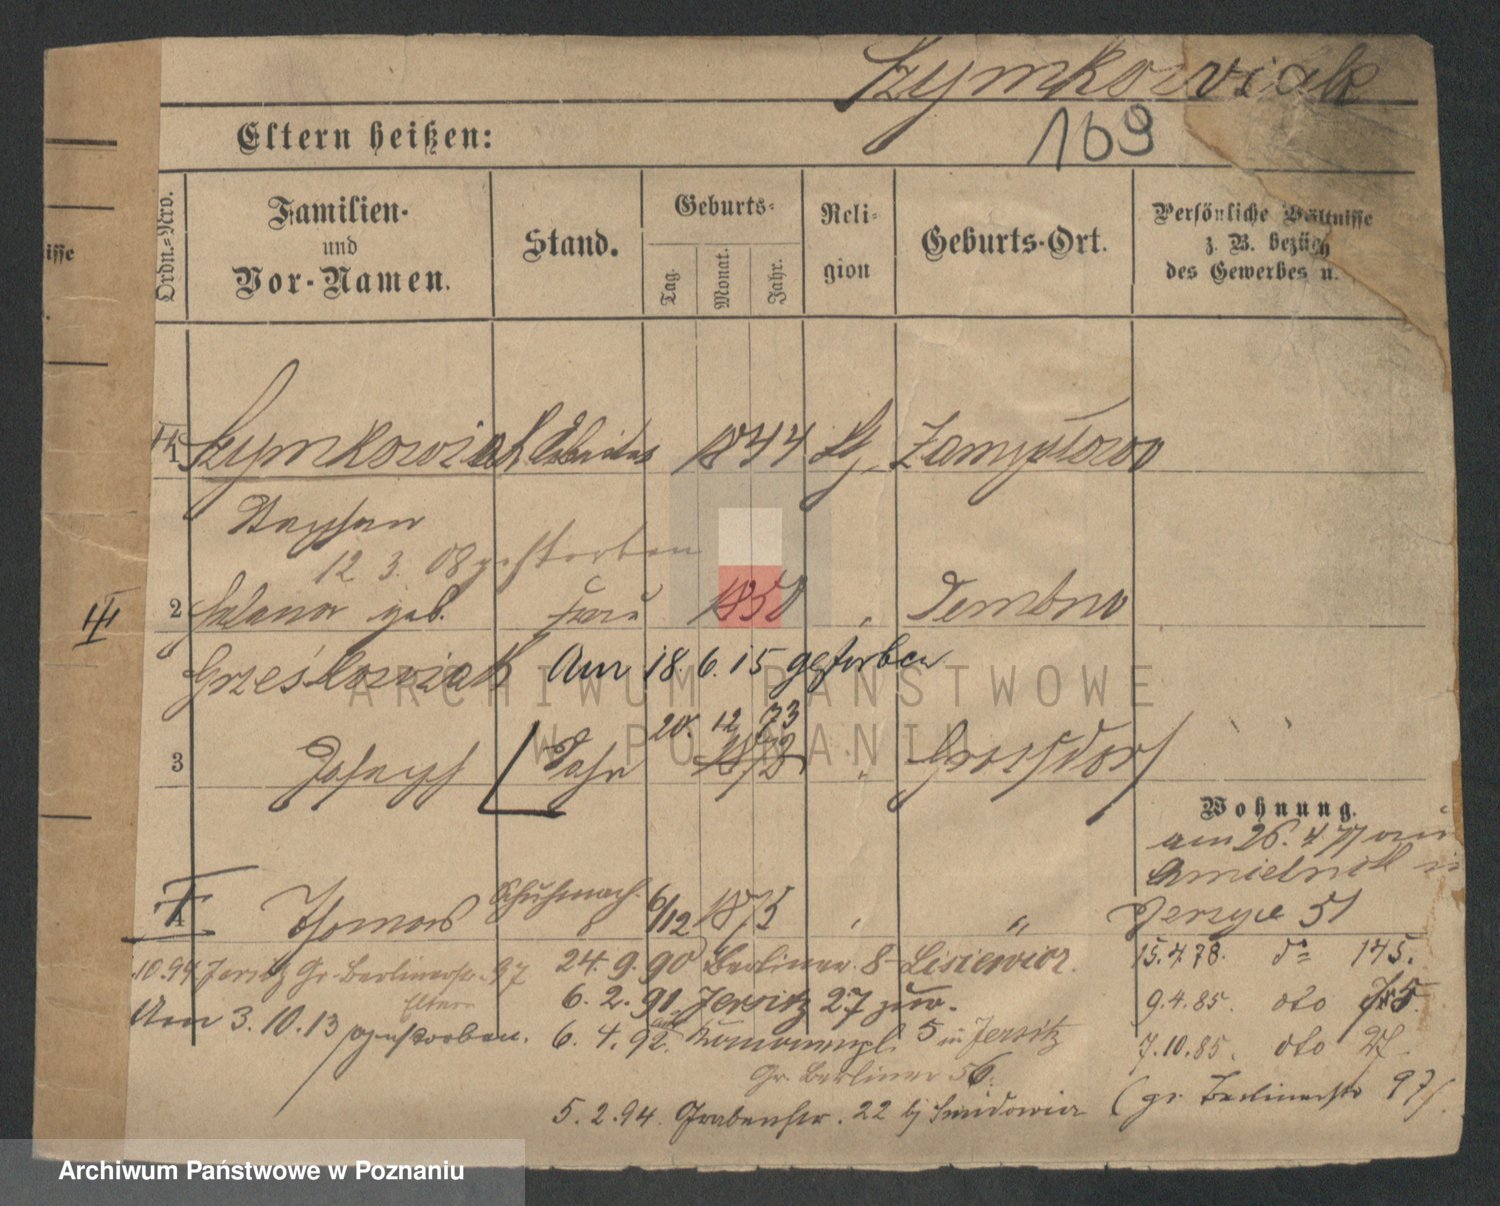 Szymkowiak
169
Eltern heißen:
Ordn.-Nro.
Familien-
und
Vor-Namen.
Stand.
Geburts-
Tag.
Monat.
Jahr.
Reli-
gion
Geburts-Ort.
Persönliche Vältnisse
z. B. bezüg
des Gewerbes u.
isse
1 Szymkowiak Arbeiter 1844 Zamysłowo
Stephan
12 3. 08 gestorben
III
2 geb. Frau 1850 " Dembno
Grześkowiak Am 18. 6. 15 gestorben
20. 12 73
3 Joseph Sohn 1872 " Grossdorf
Wohnung.
am 26. 4. 77
Jerzyce 51
4 Thomas Schuhmach. 6/12 1875 " "
15. 4. 78. do 145.
10.94 Jersitz Gr. Berlinerstr. 97
24. 9. 90 Berliner 8 Lisiewicz.
9. 4. 85. dto
Eltern
6. 2. 91. Jersitz 27 zur.
Am 3. 10. 13 gestorben.
6. 4. 92. 5 in Jersitz
7. 10. 85. dto 27
Gr. Berliner 56.
5. 2. 94. Grabenstr. 22 bj Smidowicz
(gr. Berlinerstr 97).
ARCHIWUM PAŃSTWOWE
W POZNANIU
Archiwum Państwowe w Poznaniu